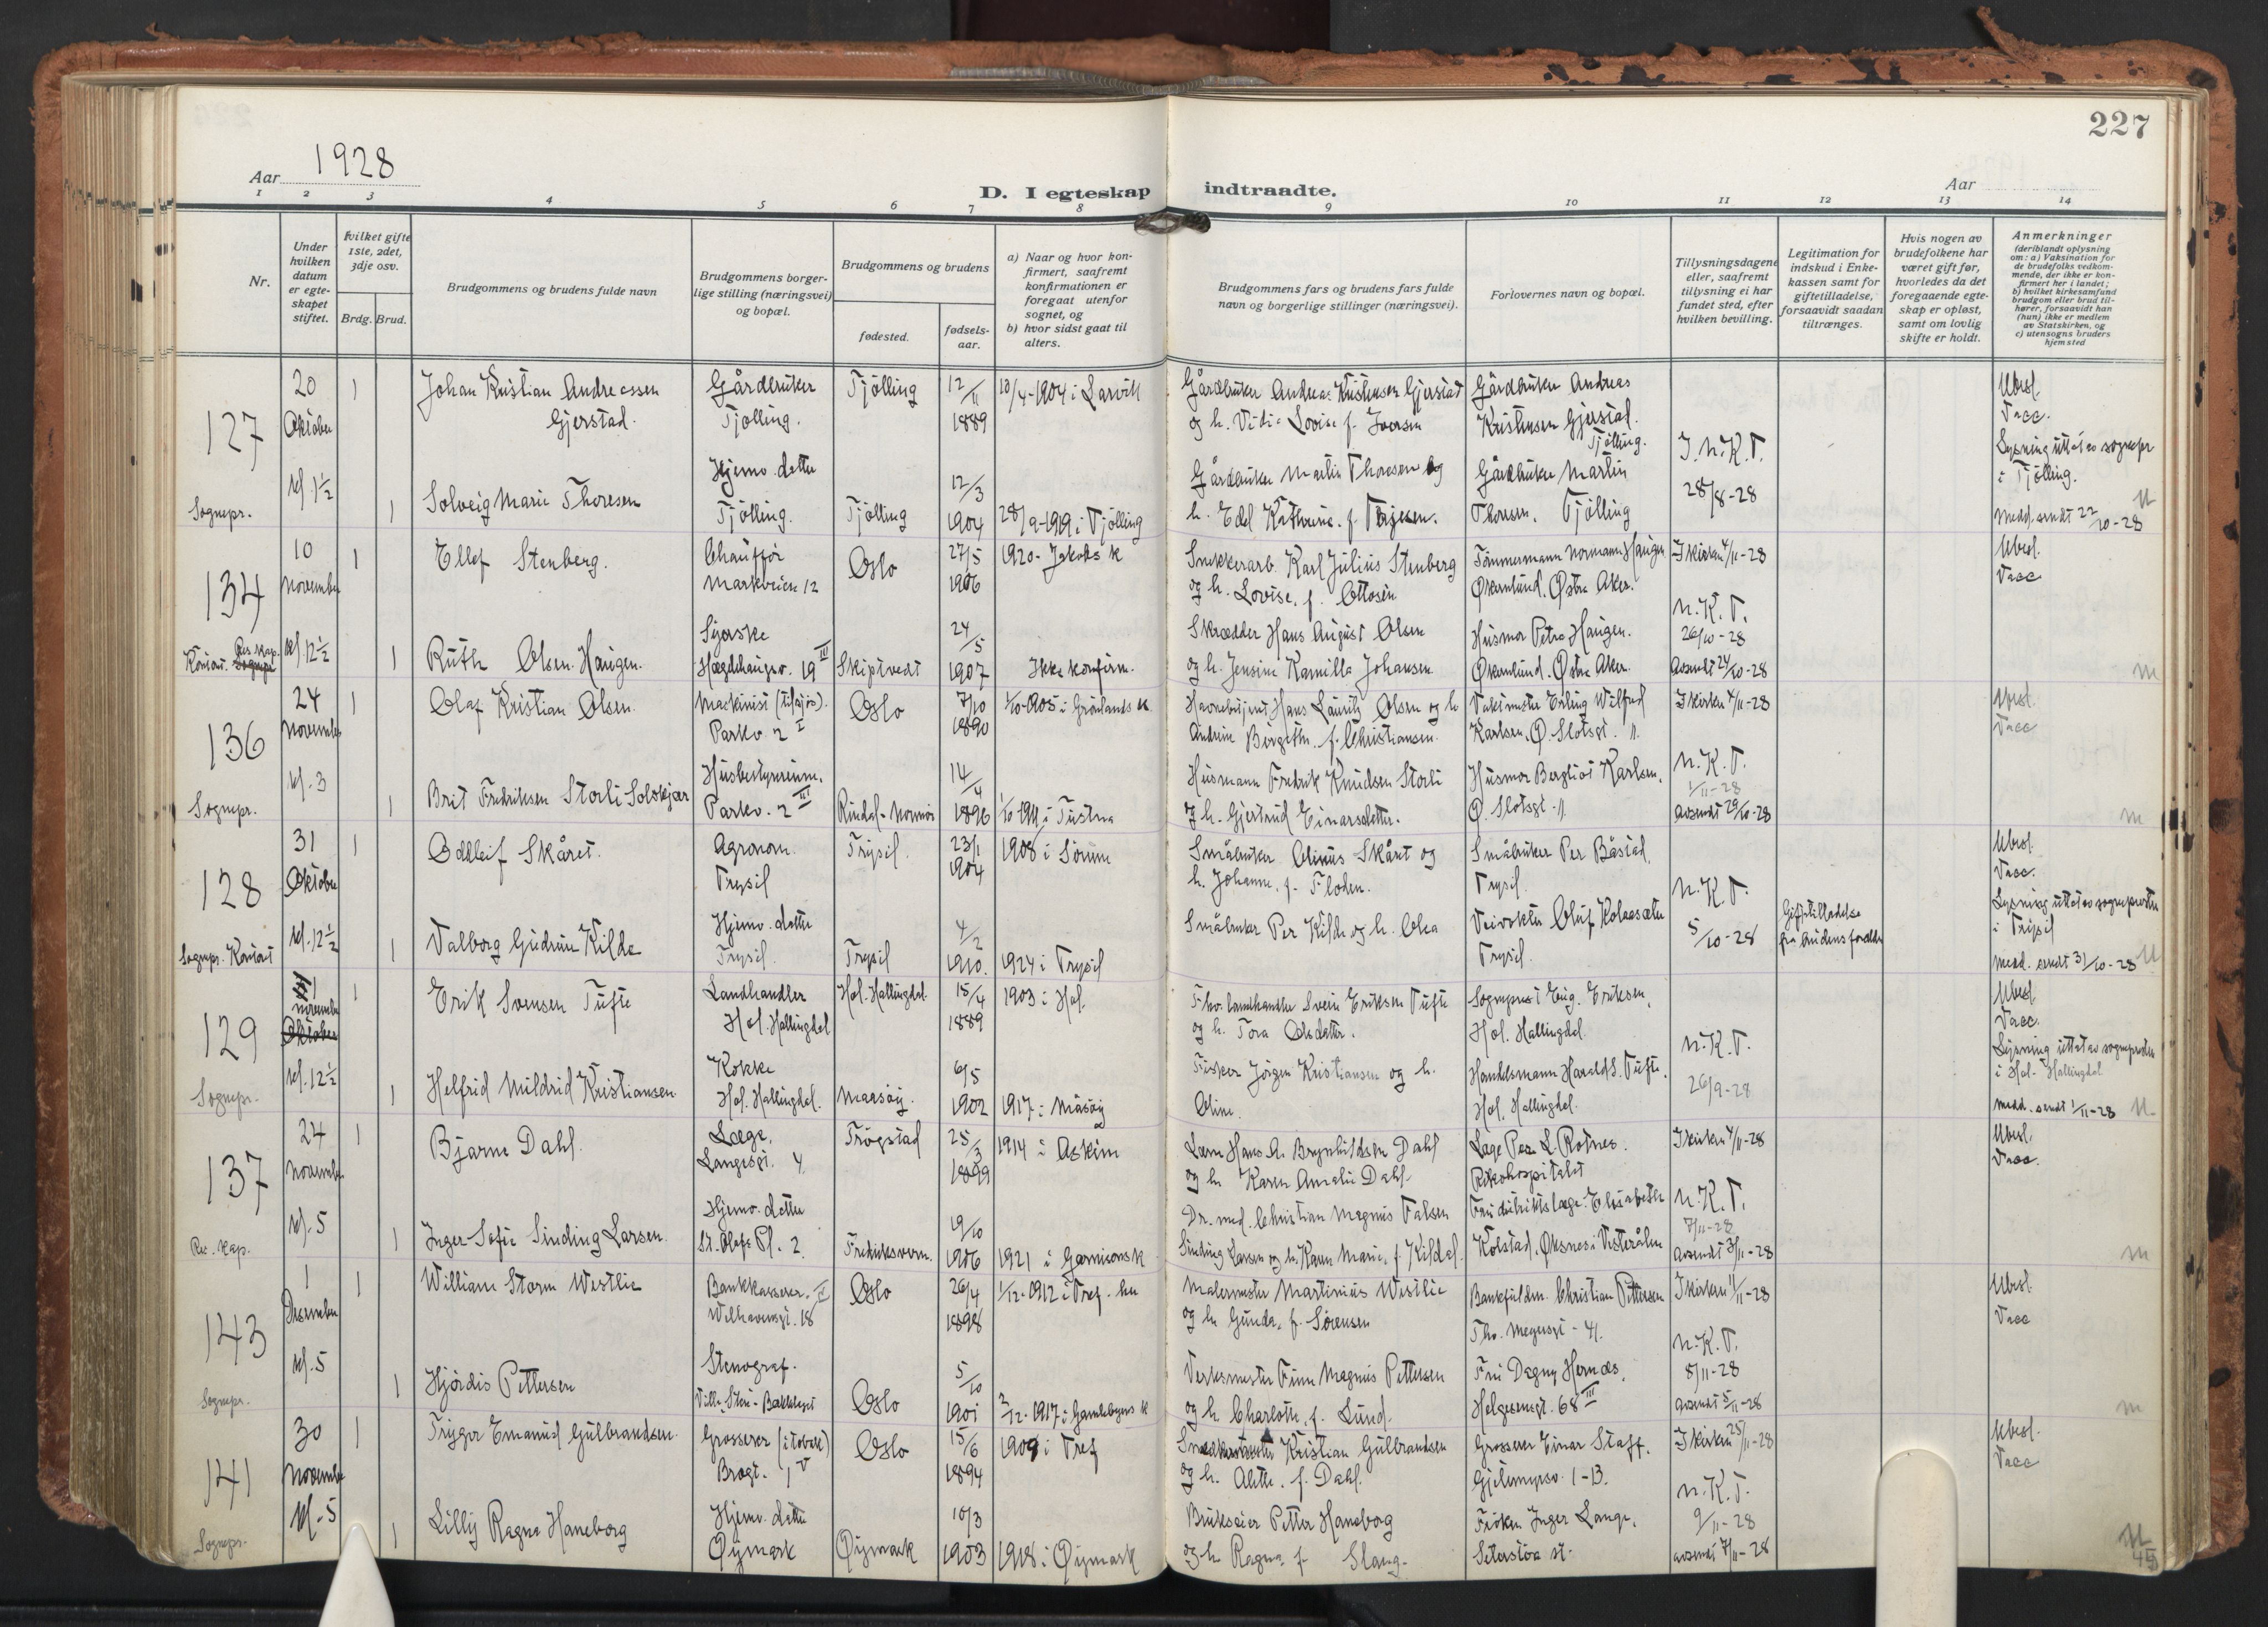 227
Aar 1928
D. I egteskap indtraadte.
Aar
1 2 3 4 5 6 7 8 9 10 11 12 13 14
Nr.
Under hvilken datum er egteskapet stiftet.
Hvilket gifte 1ste, 2det, 3dje osv.
Brdg. Brud.
Brudgommens og brudens fulde navn
Brudgommens borgerlige stilling (næringsvei) og bopæl.
Brudgommens og brudens
fødested.
fødselsaar.
a) Naar og hvor konfirmert, saafremt konfirmationen er foregaat utenfor sognet, og
b) hvor sidst gaat til alters.
Brudgommens fars og brudens fars fulde navn og borgerlige stillinger (næringsvei).
Forlovernes navn og bopæl.
Tillysningsdagene eller, saafremt tillysning ei har fundet sted, efter hvilken bevilling.
Legitimation for indskud i Enkekassen samt for giftetilladelse, forsaavidt saadan tiltrænges.
Hvis nogen av brudefolkene har været gift før, hvorledes da det foregaaende egteskap er opløst, samt om lovlig skifte er holdt.
Anmerkninger
(deriblandt oplysning om: a) Vaksination for de brudefolks vedkommende, der ikke er konfirmert her i landet; b) hvilket kirkesamfund brudgom eller brud tilhører, forsaavidt han (hun) ikke er medlem av Statskirken, og c) utensogns bruders hjemsted
127
20 Oktober
kl. 1½
Sognepr.
1
Johan Kristian Andreassen Gjerstad.
Gårdbruker Tjølling.
Tjølling
12/11 1889
10/4-1904 i Larvik
Gårdbruker Andreas Kristensen Gjerstad og h. Lovise f. Iversen
Gårdbruker Andreas Kristensen Gjerstad. Tjølling.
Ubesl. Vacc.
1
Solveig Marie Thoresen
Hjemv. datter Tjølling.
Tjølling
12/3 1904
28/9-1919 i Tjølling
Gårdbruker Martin Thoresen og h. Edel Kathrine f.
Gårdbruker Martin Thoresen. Tjølling
N.K.T. 28/8-28
Lysning uttat av sognepr. i Tjølling.
Medd. sendt 22/10-28
134
10 November
kl. 12½
Res. kap.
Kontoret.
1
Ellef Stenberg.
Chauffør Markveien 12
Oslo
27/5 1906
1920 - Jakobs k
Snekkerarb. Karl Julius Stenberg og h. Lovise f. Ottosen
Tømmermann Normann Haugen Økernlund. Østre Aker.
I kirken 4/11-28
Ubesl. Vacc
1
Ruth Olsen Haugen.
Syerske Hægdehaugsv. 19 III
Skiptvedt
24/5 1907
Ikke konfirm.
Skrædder Hans August Olsen og h. Jensine Kamilla Johansen
Husmor Petra Haugen. Økernlund. Østre Aker.
N.K.T. 26/10-28
avsendt 24/10-28
136
24 November
kl. 3
Sognepr.
1
Olaf Kristian Olsen.
Maskinist (tilsjøs). Parkv. 2 I
Oslo
7/10 1890
1/10-1905 i Grønlands k
Hans Lauritz Olsen og h Andrine Birgitte f. Christiansen.
Vaktmester Erling Wilfred Karlsen. Ø. Slotsgt. 11.
I kirken 4/11-28
Ubesl. Vacc
1
Brit Fredriksen Storli Solskjær
Husbestyrerinne. Parkv. 2 III
Rindal - Nordmør
14/4 1896
1/10 1911 i Tustna
Husmann Fredrik Knudsen Storli og h. Gjertrud Einarsdatter.
Husmor Bergliot Karlsen. Ø. Slotsgt. 11.
N.K.T. 1/11-28
avsendt 29/10-28
128
31 Oktober
kl. 12½
Sognepr. Kontoret
1
Oddleif Skåret.
Agronom. Trysil
Trysil.
23/1 1904
1908 i Sørum
Småbruker Olinius Skåret og h. Johanne f. Floden.
Småbruker Per Båstad, Trysil.
Ubesl. Vacc.
1
Valborg Gudrun Kilde
Hjemv. datter Trysil.
Trysil
4/2 1910.
1924 i Trysil
Småbruker Per Kilde og h. Olea
Veivokter Oluf Kolaasæter Trysil.
N.K.T. 5/10-28
Giftetilladelse fra brudens forældre
Lysning uttat av sognepresten i Trysil
Medd. sendt 31/10-28
129
1 November
kl. 12½
Sognepr.
1
Erik Svensen Tufte
Landhandler Hol. Hallingdal
Hol. Hallingdal.
15/4 1889
1903 i Hol.
Fhv. landhandler Svein Eriksen Tufte og h. Tora Olsdatter.
Sogneprest Eug. Eriksen, Hol. Hallingdal.
Ubesl. Vacc.
1
Helfrid Mildrid Kristiansen
Kokke Hol. Hallingdal.
Maasøy.
6/5 1902
1917 i Måsøy
Fisker Jørgen Kristiansen og h. Oline.
Handelsmann Harald S. Tufte. Hol. Hallingdal.
N.K.T. 26/9-28
Lysning uttat av sognepresten i Hol. Hallingdal
Medd. sendt 1/11-28
137
24 November
kl. 5
Res. kap.
1
Bjarne Dahl.
Læge. Langesgt. 4
Trøgstad
25/3 1899
1914 i Askim
Hans A. Brynhildsen Dahl og h Karen Amalie Dahl.
Læge Per L. Rotnes. Rikshospitalet
I kirken 4/11-28
Ubesl. Vacc.
1
Inger Sofie Sinding Larsen.
Hjemv. datter St. Olafs Pl. 2
Fredriksvern.
19/10 1906
1921 i Garnisons k
Dr. med. Christian Magnus Falsen Sinding Larsen og h. Karen Marie f. Kildal.
Fru distriktslæge Elisabeth Kolstad, Øksnes i Vesterålen
N.K.T. 7/11-28
avsendt 3/11-28
143
1 Desember
kl. 5
Sognepr.
1
William Storm Westlie
Bankkasserer. Welhavensgt. 18
Oslo
26/4 1898
1/12-1912 i Tref. h
Malermester Martinius Westlie og h Gunda f. Sørensen
Bankfuldm. Christian Pettersen Tho. Meyersgt - 41.
I kirken 11/11-28
Ubesl. Vacc
1
Hjørdis Pettersen
Stenograf. Villa Steni - Bækkelaget
Oslo
5/10 1901
2/12-1917 i Gamlebyens k
Verksmester Finn Magnus Pettersen og h Charlotte f. Lund.
Fru Dagny Hernæs, Helgesensgt. 68 III
N.K.T. 8/11-28
avsendt 5/11-28
141
30 November
kl. 5
Sognepr.
1
Trygve Emanuel Gulbrandsen.
Grosserer (i tobak) Brogt. 1 V
Oslo
15/6 1894
1909 i Tref
Snedkermester Kristian Gulbrandsen og h. Alette f. Dahl.
Grosserer Einar Staff. Gjetemyrsv. 1-B.
I kirken 25/11-28
Ubesl. Vacc
1
Lilly Ragna Haneborg
Hjemv. datter Øymark
Øymark
10/3 1903
1918 i Øymark
Brukseier Petter Haneborg og h Ragna f. Stang.
Frøken Inger Lange. Seterstøa st.
N.K.T. 9/11-28
avsendt 7/11-28
45